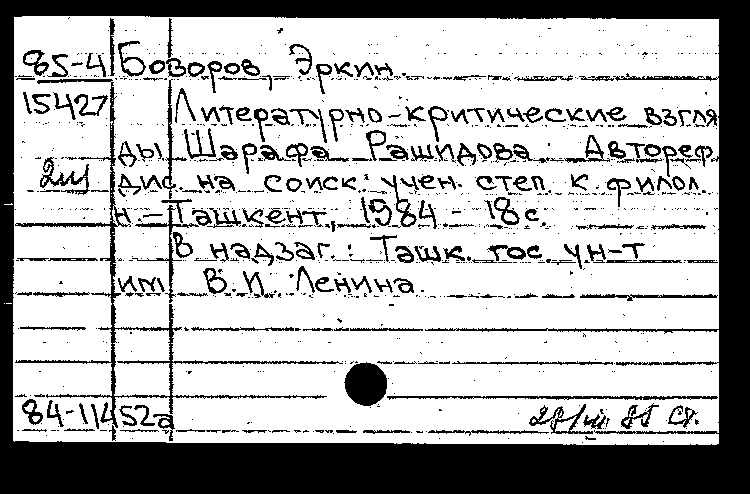 85-4 Бозоров, Эркин.
15427 Литературно-критические взгля
ды Шарафа Рашидова: Автореф.
2ш дис. на соиск. учен. степ. к. филол.
н. - Ташкент, 1984 - 18 с.
В надзаг.: Ташк. гос. ун-т
им В. И. Ленина.
84-11452а 28/ 85